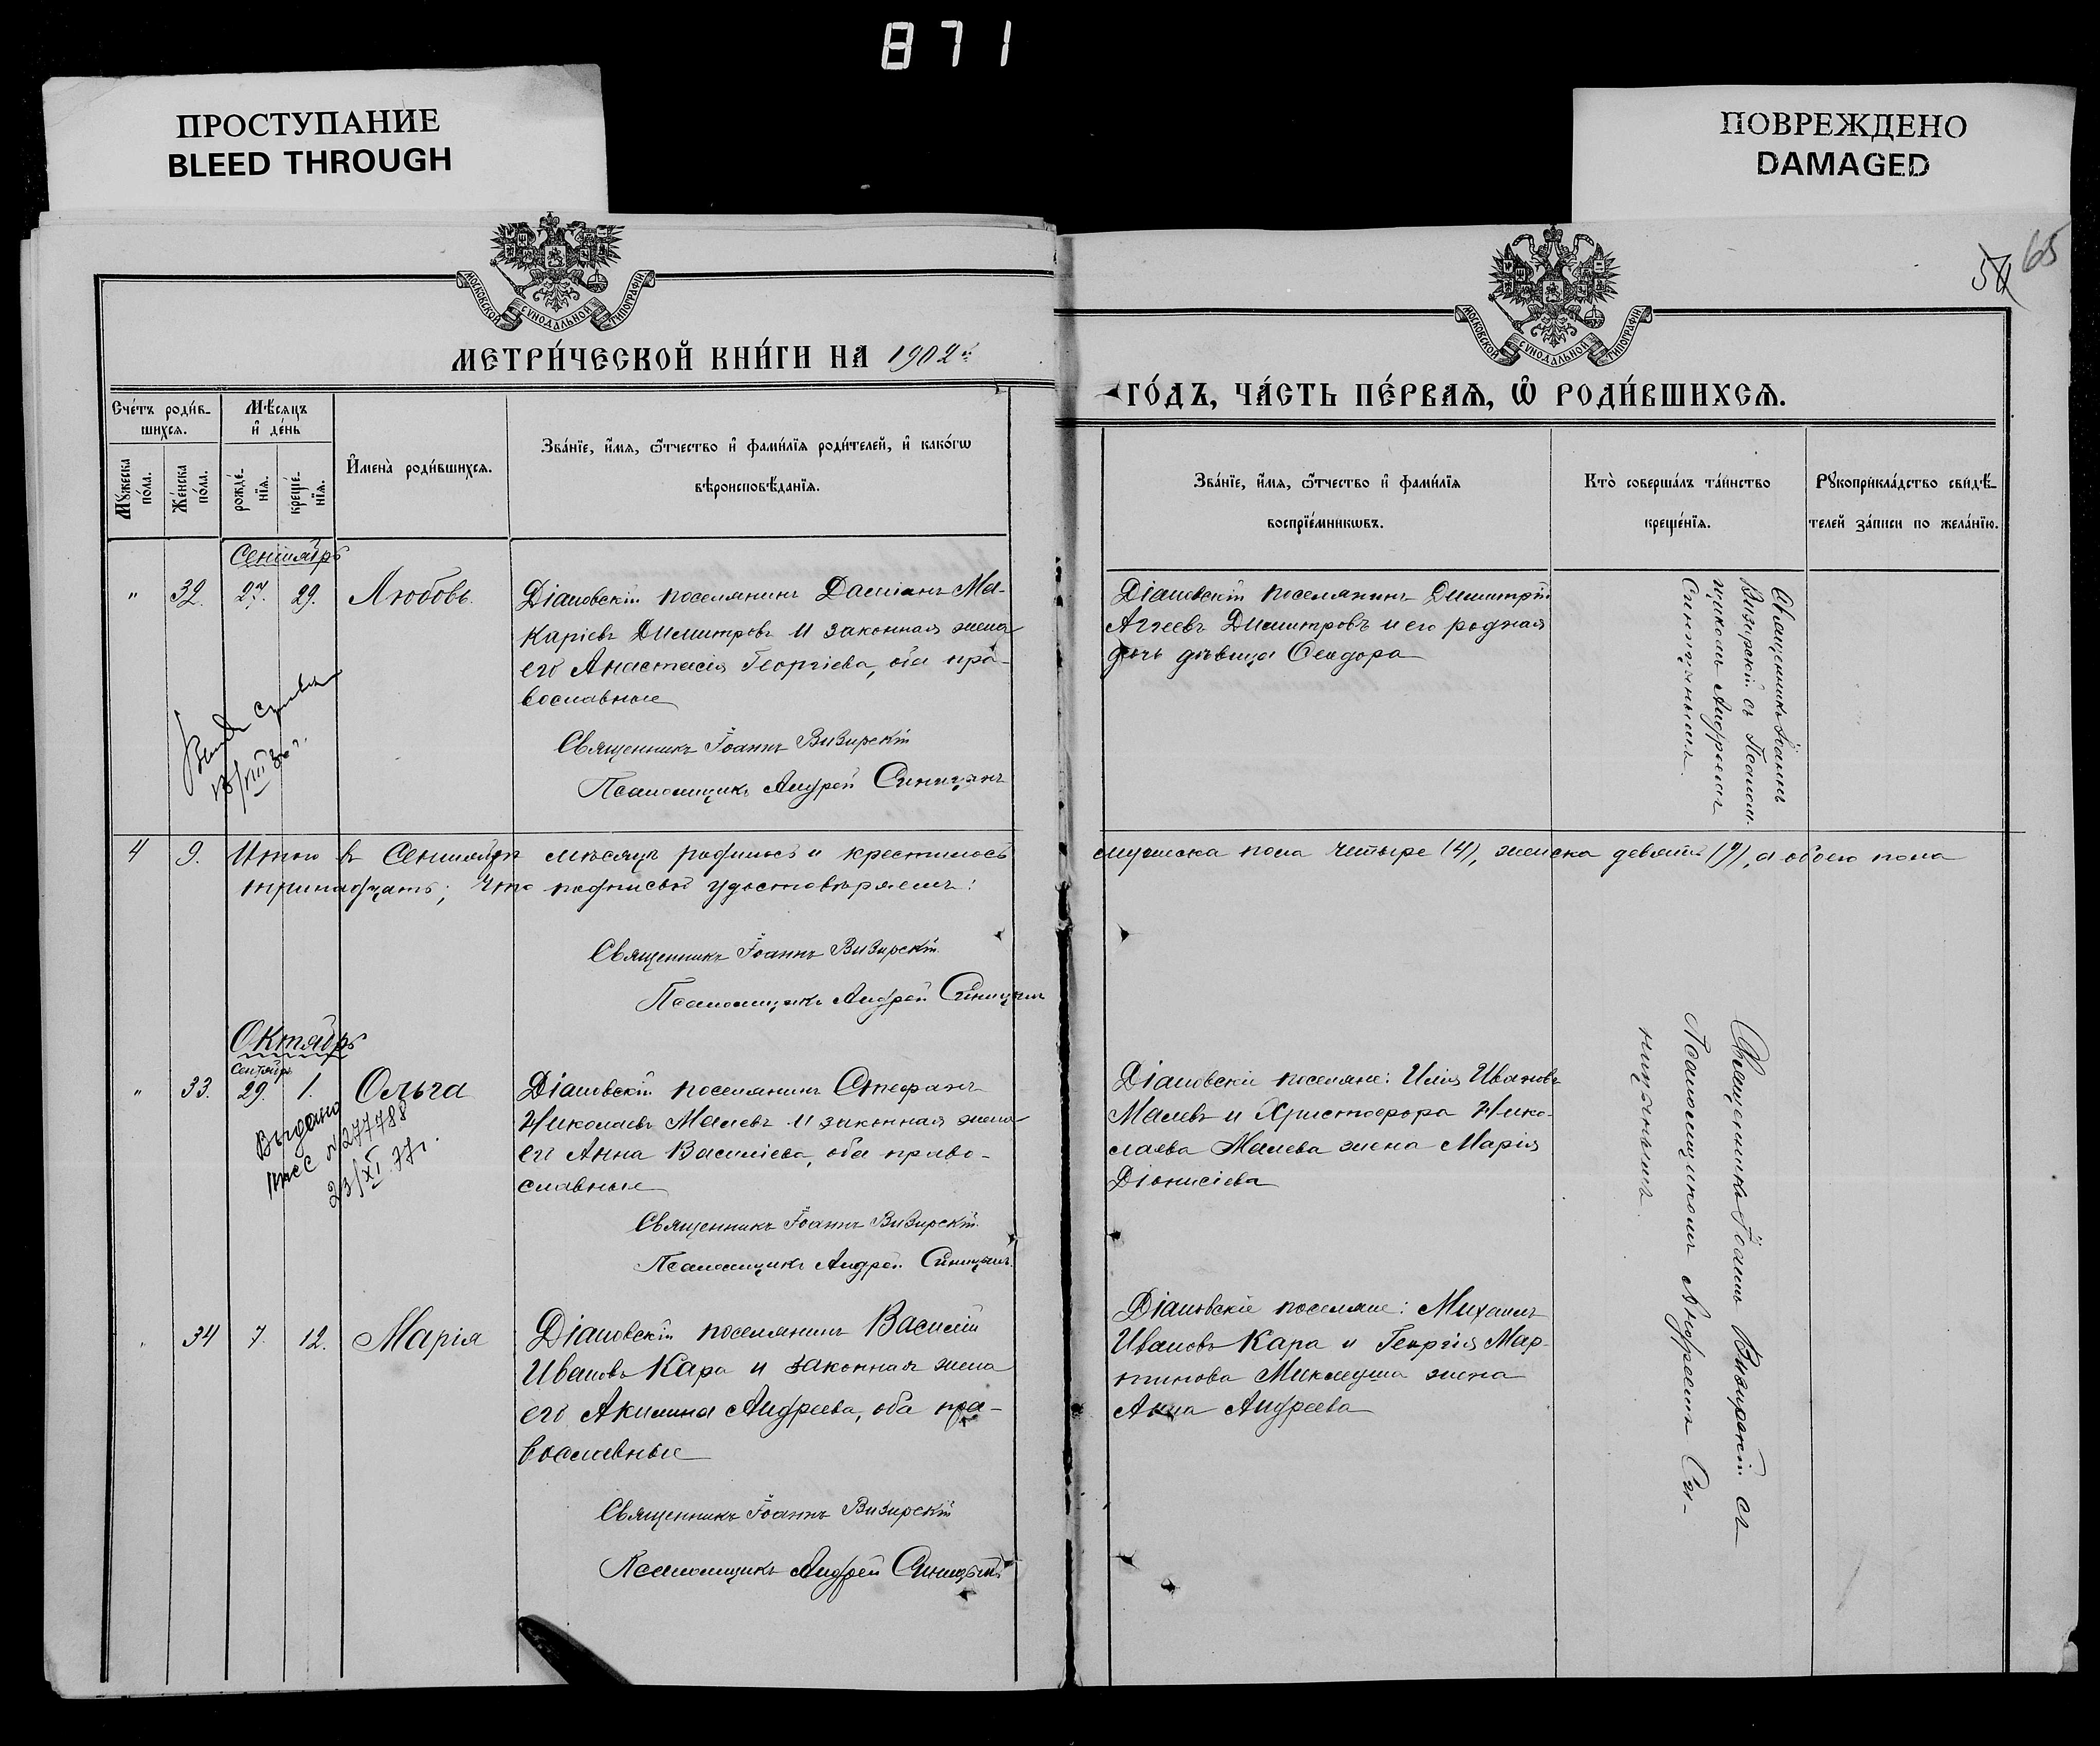 871
ПРОСТУПАНИЕ
BLEED THROUGH
ПОВРЕЖДЕНО
DAMAGED
65
54
МОСКОВСКОЙ СѴНОДАЛЬНОЙ ТИПОГРАФІИ
МОСКОВСКОЙ СѴНОДАЛЬНОЙ ТИПОГРАФІИ
МЕТРИ́ЧЕСКОЙ КНИ́ГИ НА 1902й
ГО́ДЪ, ЧА́СТЬ ПЕ́РВАѦ, Ѽ РОДИ́ВШИХСѦ.
Сче́тъ роди́в-
шихсѧ.
Мѣ́сѧцъ
и҆ де́нь
Мꙋ́жеска
по́ла.
Же́нска
по́ла.
рожде́-
нїѧ.
креще́-
нїѧ.
И҆мена̀ роди́вшихсѧ.
Зва́нїе, и҆́мѧ, ѻ҆́тчество и҆ фами́лїѧ роди́телей, и҆ како́гѡ
вѣроисповѣ́данїѧ.
Зва́нїе, и҆́мѧ, ѻ҆́тчество и҆ фами́лїѧ
воспрїе́мникѡвъ.
Кто̀ соверша́лъ та́инство
креще́нїѧ.
Рꙋкоприкла́дство свидѣ́-
телей за́писи по жела́нїю.
Сентябрь
" 32. 27. 29. Любовь.
Діановскій поселянинъ Даміанъ Ма-
каріевъ Димитровъ и законная жена
его Анастасія Георгіева, оба пра-
вославные
Священникъ Іоаннъ Визирскій
Псаломщикъ Андрей Синицынъ
Діановскій поселянинъ Димитрій
Аггеевъ Димитровъ и его родная
дочь дѣвица Ѳеодора
Священникъ Іоаннъ
Визирскій съ Псалом-
щикомъ Андреемъ
Синицынымъ.
13/VIII 36 г.
4 9. Итого въ Сентябрѣ мѣсяцѣ родилось и крестилось мужеска пола четыре (4), женска девять (9), а обоего пола
тринадцать; что подписью удостовѣряемъ:
Священникъ Іоаннъ Визирскій
Псаломщикъ Андрей Синицынъ
Октябрь
Сентябрь
" 33. 29. 1. Ольга
Выдано
23/XI 77г.
Діановскій поселянинъ Стефанъ
Николаевъ Малевъ и законная жена
его Анна Василіева, оба право-
славные
Священникъ Іоаннъ Визирскій.
Псаломщикъ Андрей Синицынъ.
Діановскіе поселяне: Илія Ивановъ
Малевъ и Христофора Нико-
лаева Малева жена Марія
Діонисіева
Священникъ Іоаннъ Визирскій съ
Псаломщикомъ Андреемъ Си-
ницынымъ.
" 34 7. 12. Марія
Діановскій поселянинъ Василій
Ивановъ Кара и законная жена
его Акилина Андреева, оба пра-
вославные
Священникъ Іоаннъ Визирскій
Псаломщикъ Андрей Синицынъ
Діановскіе поселяне: Михаилъ
Ивановъ Кара и Георгія Мар-
тинова жена
Анна Андреева